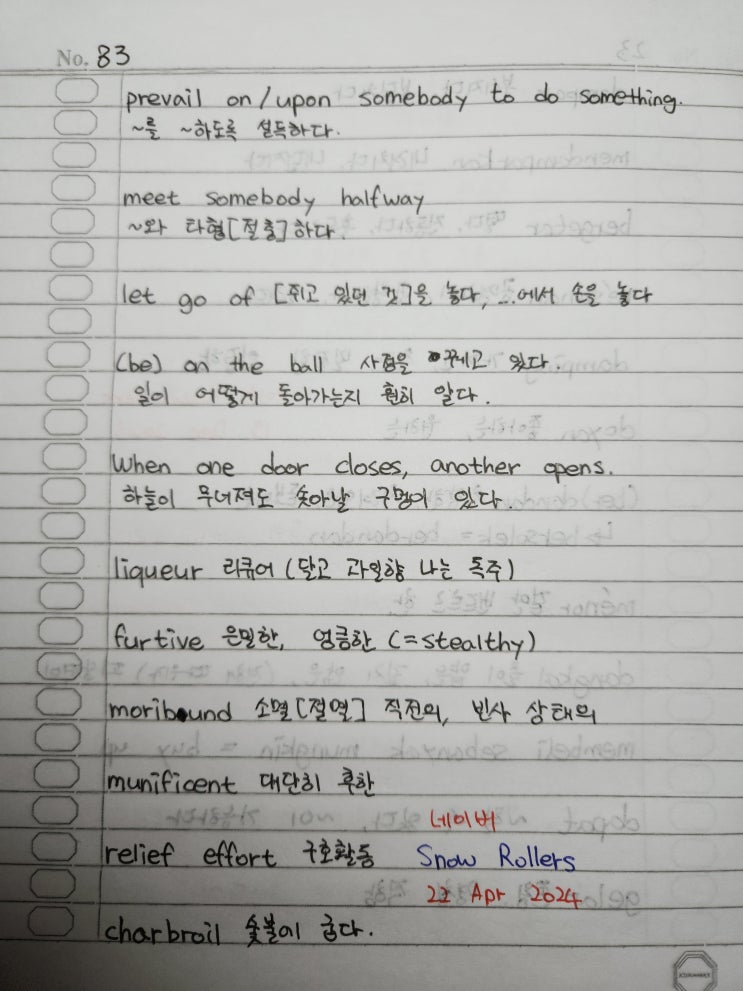 No. 83
prevail on/upon somebody to do something.
~를 ~하도록 설득하다.
meet somebody halfway
~와 타협[절충]하다.
let go of [쥐고 있던 것]을 놓다, ...에서 손을 놓다
(be) on the ball 사점을 꿰고 있다.
일이 어떻게 돌아가는지 훤히 알다.
When one door closes, another opens.
하늘이 무너져도 솟아날 구멍이 있다.
liqueur 리큐어 (달고 과일향 나는 독주)
furtive 은밀한, 엉큼한 (=stealthy)
moribound 소멸[절멸] 직전의, 빈사 상태의
munificent 대단히 후한
네이버
relief effort 구호활동 Snow Rollers
22 Apr 2024
charbroil 숯불에 굽다.